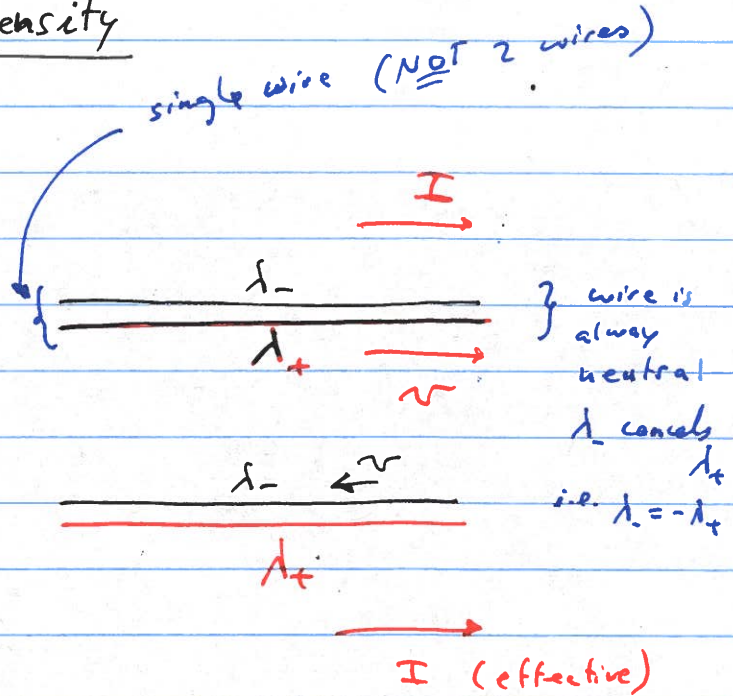 ensity
single wire (NOT 2 wires)
I
λ₋
λ₊
v
} wire is
alway
neutral
λ₋ cancels
λ₊
i.e. λ₋ = -λ₊
λ₋ v
λ₊
I (effective)